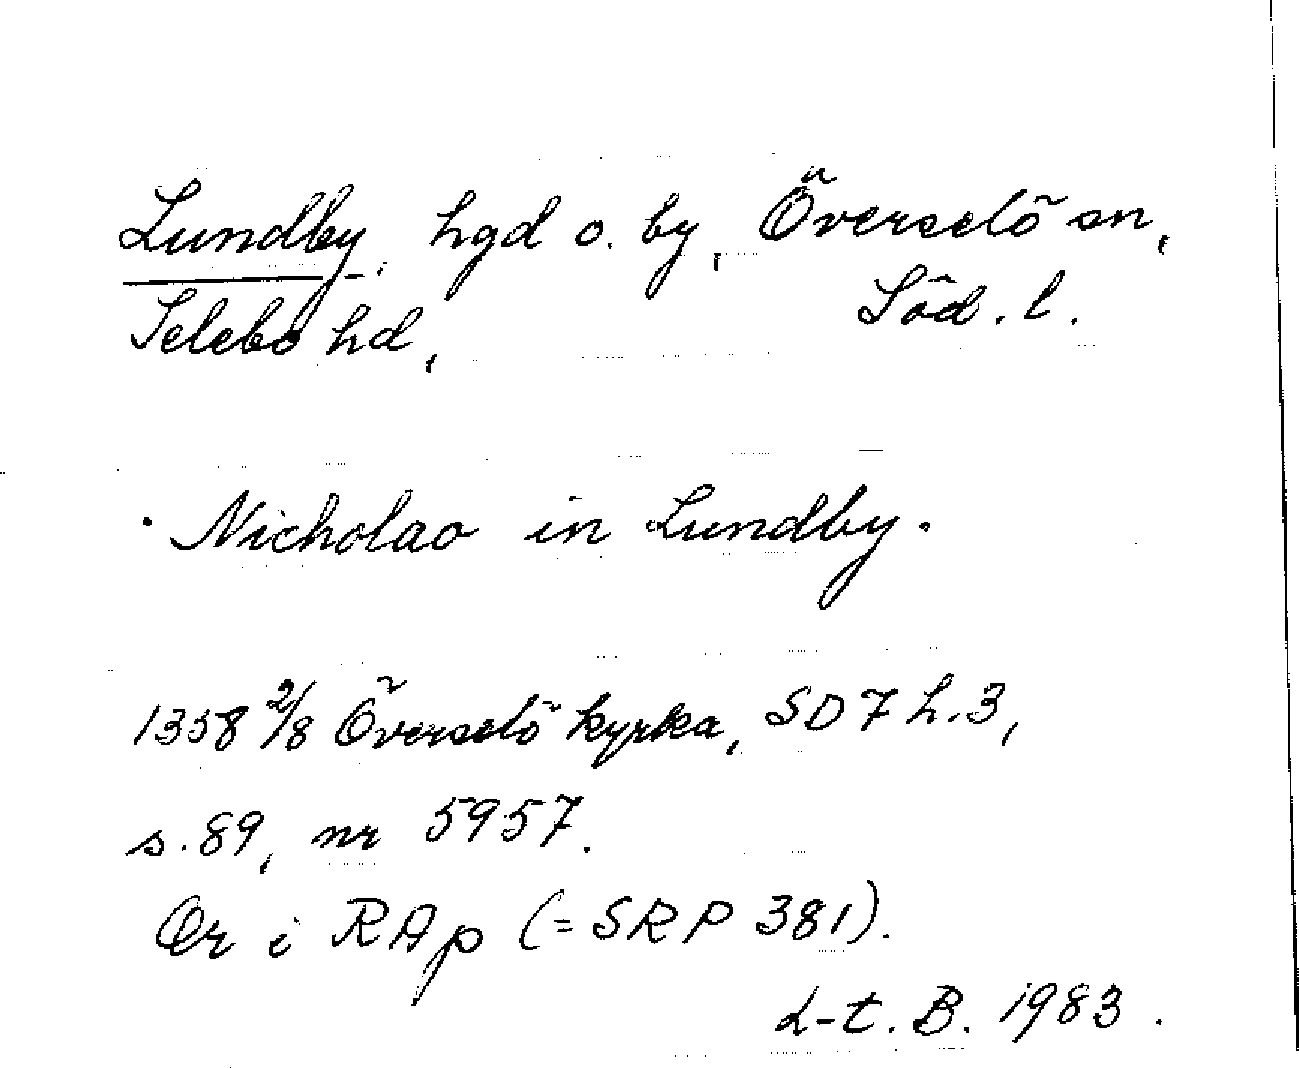 Lundby, hgd o. by, Överselö sn,
Selebo hd, Söd. l.
· Nicholao in Lundby.
1358 2/8 Överselö kyrka, SD 7 h. 3,
s. 89, nr 5957.
Or i RAp (= SRP 381).
L-t. B. 1983.